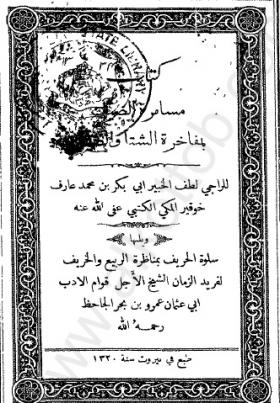 كتاب
مسامرة
بمفاخرة الشتاء
للراجي لطف الخبير ابي بكر بن محمد عارف
خوقير المكي الكتبي عفى الله عنه
ويليها
سلوة الحريف بمناظرة الربيع والخريف
لفريد الزمان الشيخ الأجل قوام الادب
ابي عثمان عمرو بن بحر الجاحظ
رحمه الله
طبع في بيروت سنة ١٣٢٠